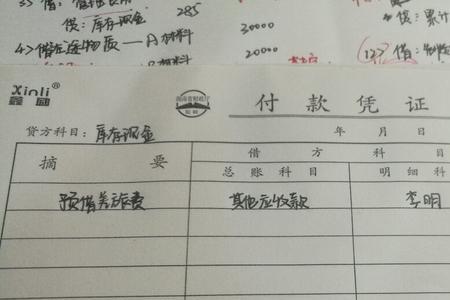 3> 借：管理费用 285
贷：库存现金
30000
4> 借在途物资—A材料
20000
B材料
贷：累计
12> 借：制造
Xinli®
鑫  付款凭证
贷方科目：库存现金 年 月 日
摘要 借方科目
总账科目 明细科
预借差旅费 其他应收款 李明